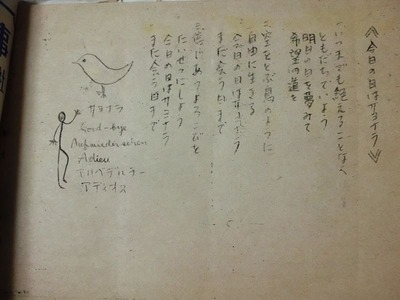 《今日の日はサヨナラ》
一、いつまでも絶えることなく
ともだちでいよう
明日の日を夢みて
希望の道を
二、空をとぶ鳥のように
自由に生きる
今日の日はサヨナラ
また会う日まで
三、信じあうよろこびを
たいせつにしよう
今日の日はサヨナラ
また会う日まで
サヨナラ
Good-bye
Aufwiedersehen
Adieu
アルベデルチー
アディオス